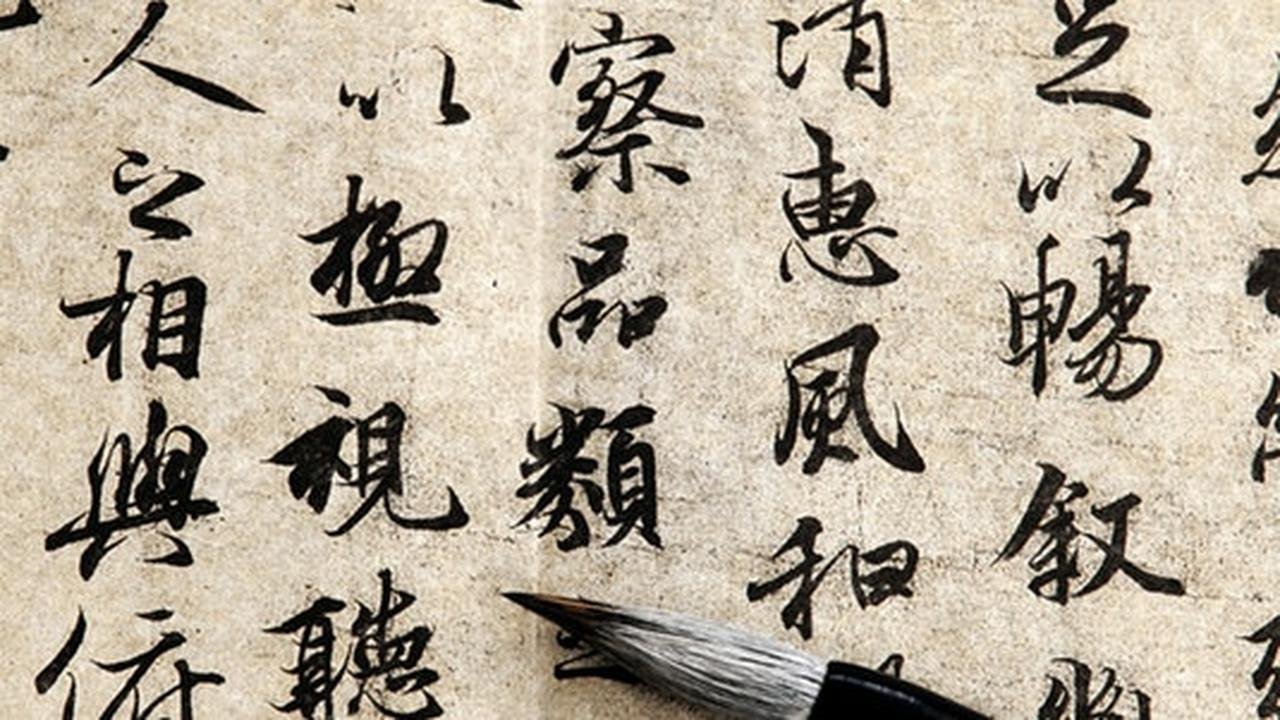 足以暢叙
清惠風和
察品類
以極視聽
人之相與俯